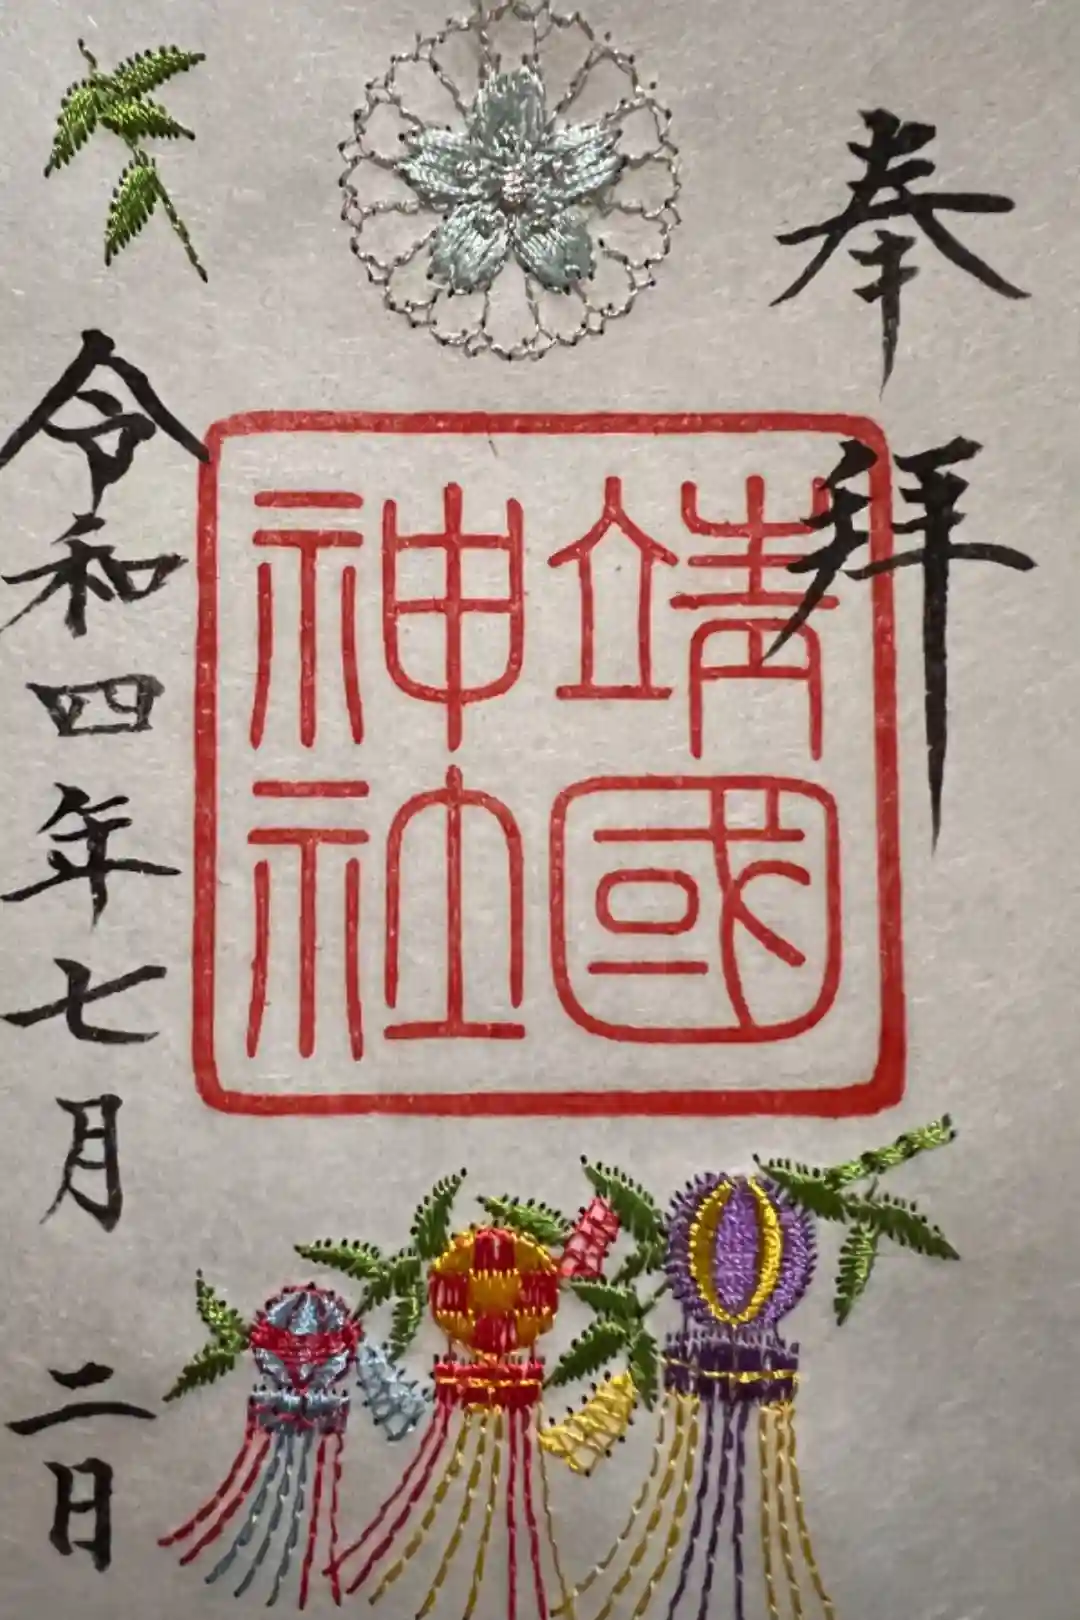 奉拝
靖國
神社
令和四年七月二日